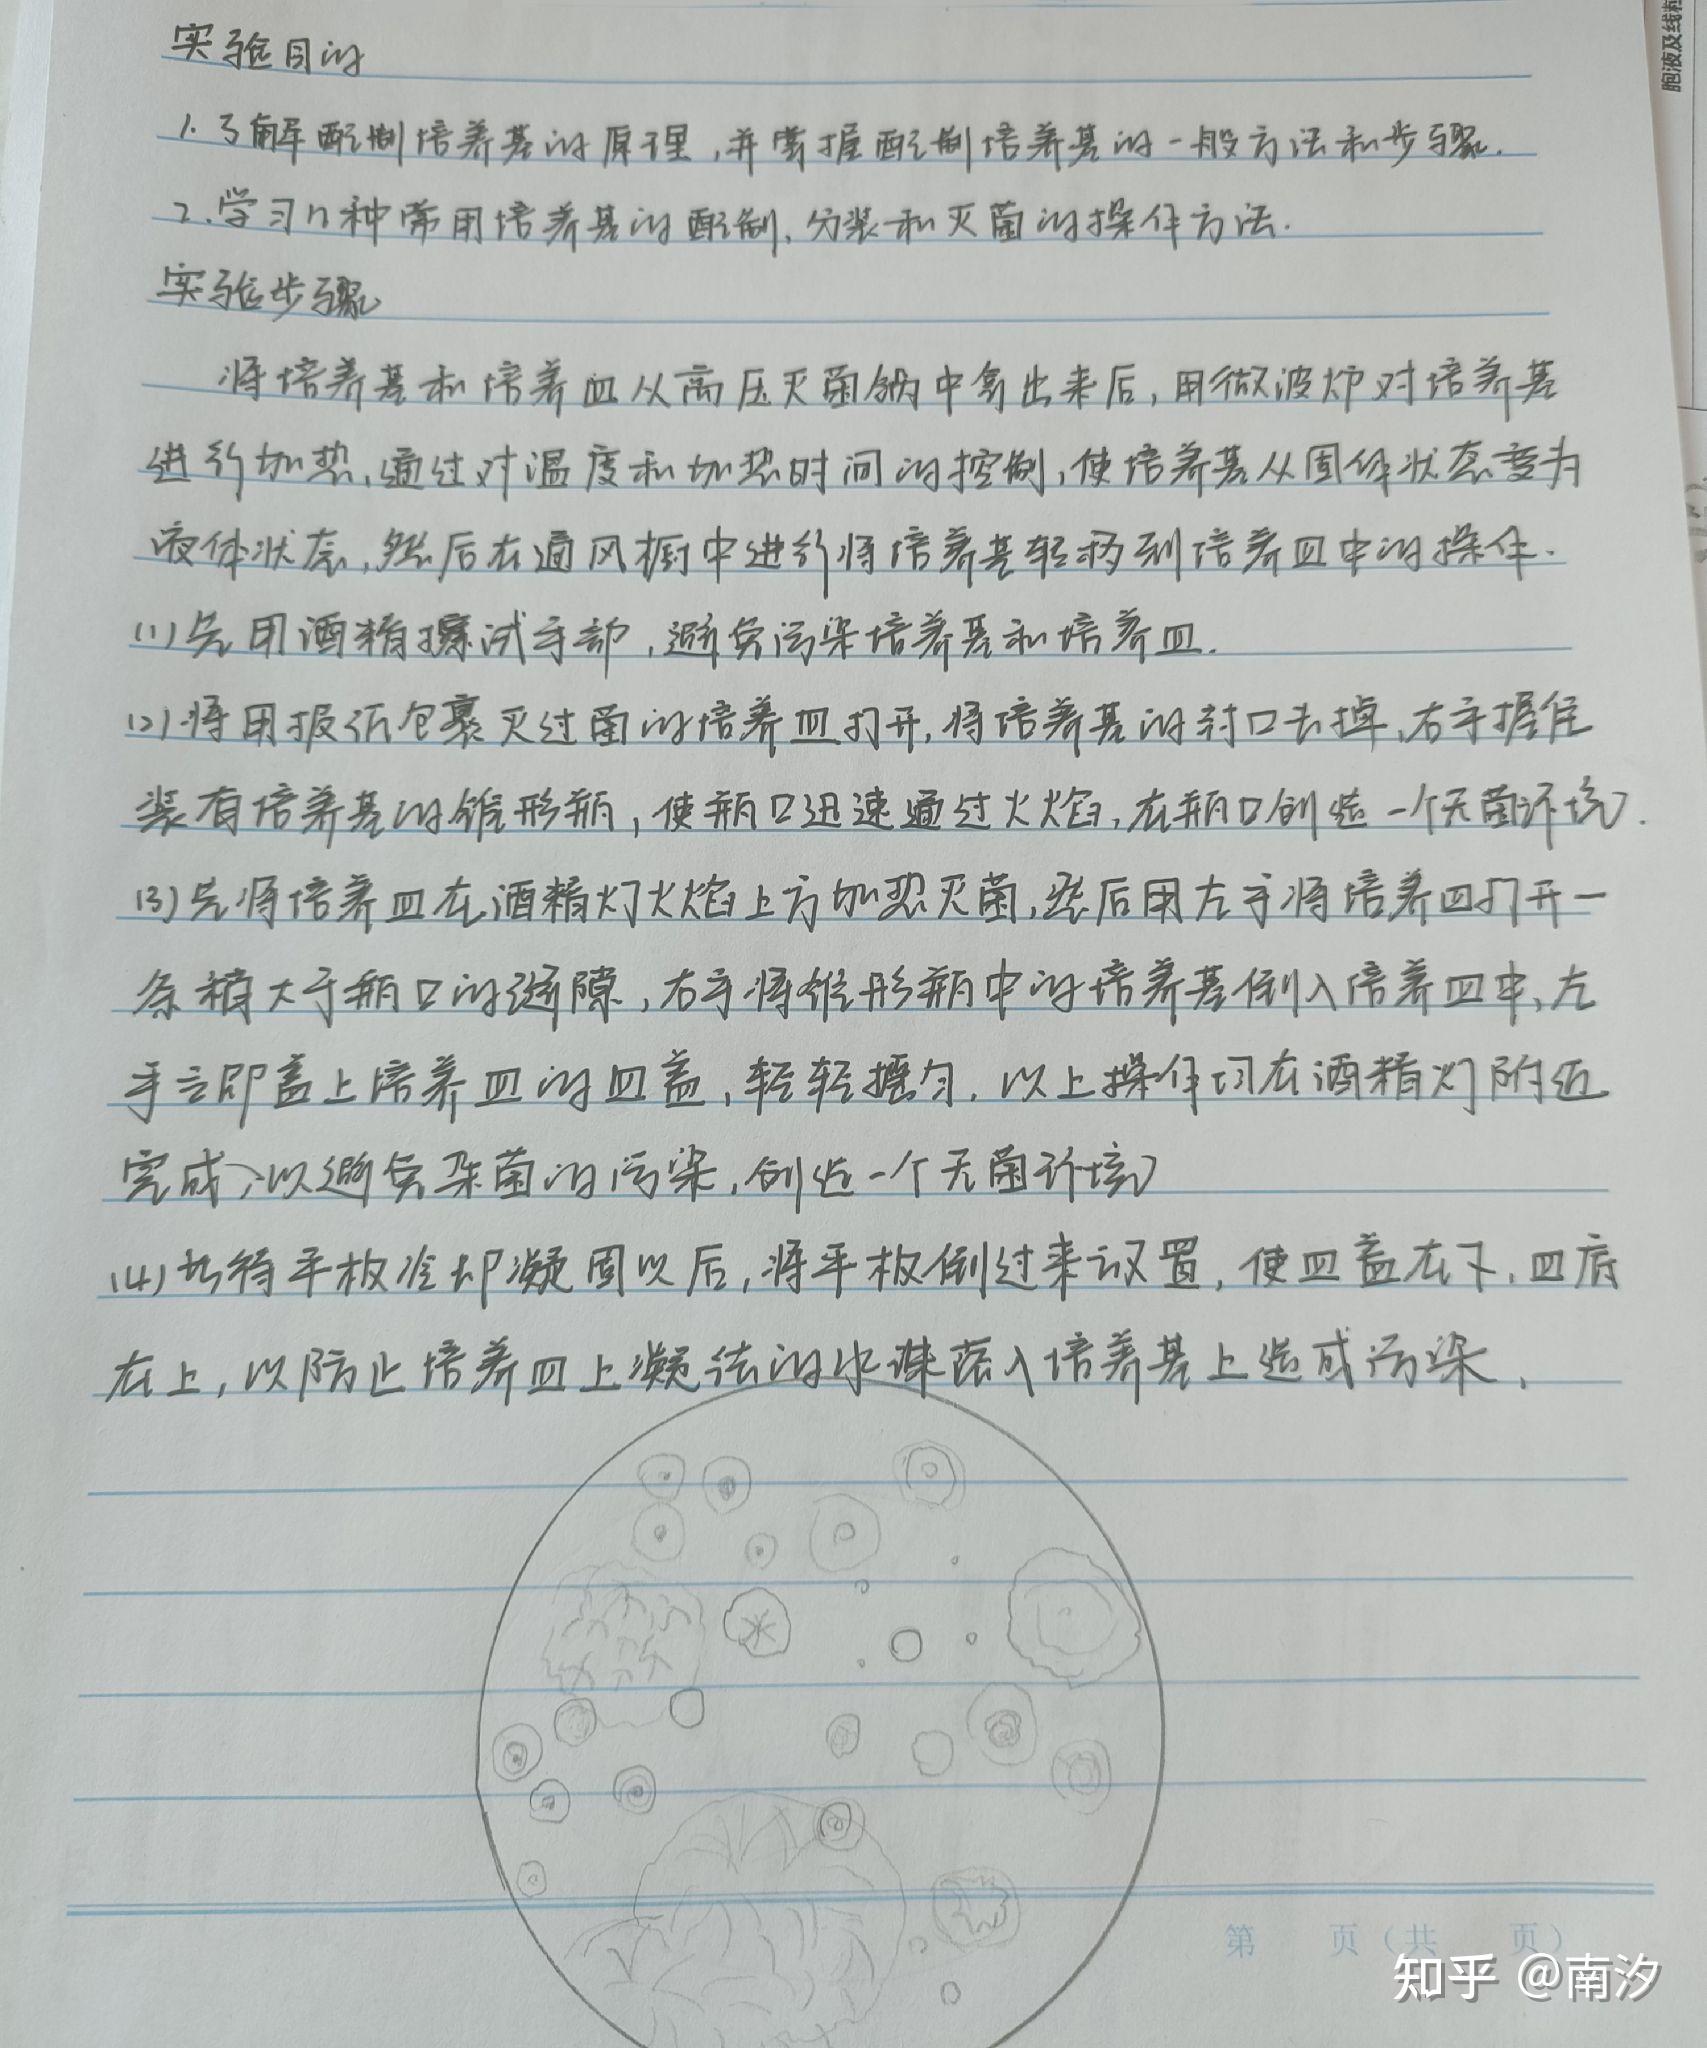 胞液及线粒
实验目的
1.了解配制培养基的原理,并掌握配制培养基的一般方法和步骤.
2.学习几种常用培养基的配制、分装和灭菌的操作方法.
实验步骤
将培养基和培养皿从高压灭菌锅中拿出来后,用微波炉对培养基
进行加热,通过对温度和加热时间的控制,使培养基从固体状态变为
液体状态,然后在通风橱中进行将培养基转移到培养皿中的操作.
(1)先用酒精擦试手部,避免污染培养基和培养皿.
(2)将用报纸包裹灭过菌的培养皿打开,将培养基的封口去掉,右手握住
装有培养基的锥形瓶,使瓶口迅速通过火焰,在瓶口创造一个无菌环境.
(3)先将培养皿在酒精灯火焰上方加热灭菌,然后用左手将培养皿打开一
条稍大于瓶口的缝隙,右手将锥形瓶中的培养基倒入培养皿中,左
手立即盖上培养皿的皿盖,轻轻摇匀.以上操作均在酒精灯附近
完成,以避免杂菌的污染,创造一个无菌环境
(4)等待平板冷却凝固以后,将平板倒过来放置,使皿盖在下,皿底
在上,以防止培养皿上凝结的水珠落入培养基上造成污染.
第 页(共 页)
知乎 @南汐